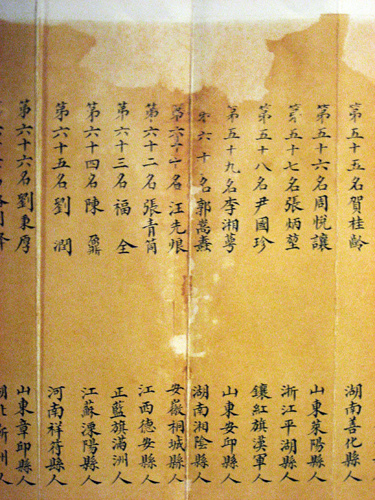 第五十五名賀桂齡 湖南善化縣人
第五十六名周悅讓 山東萊陽縣人
第五十七名張炳堃 浙江平湖縣人
第五十八名尹國珍 鑲紅旗漢軍人
第五十九名李湘蕚 山東安邱縣人
第六十名郭嵩燾 湖南湘陰縣人
第六十一名汪先烺 安徽桐城縣人
第六十二名張青 江西德安縣人
第六十三名福全 正藍旗滿洲人
第六十四名陳鼐 江蘇溧陽縣人
第六十五名劉潤 河南祥符縣人
第六十六名劉秉厚 山東章邱縣人